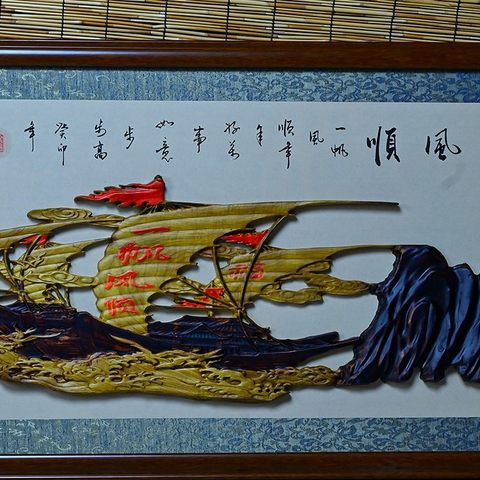 風順
一帆
風
順年
年
好萬
事
如意
步
步高
癸卯
年
一帆风顺